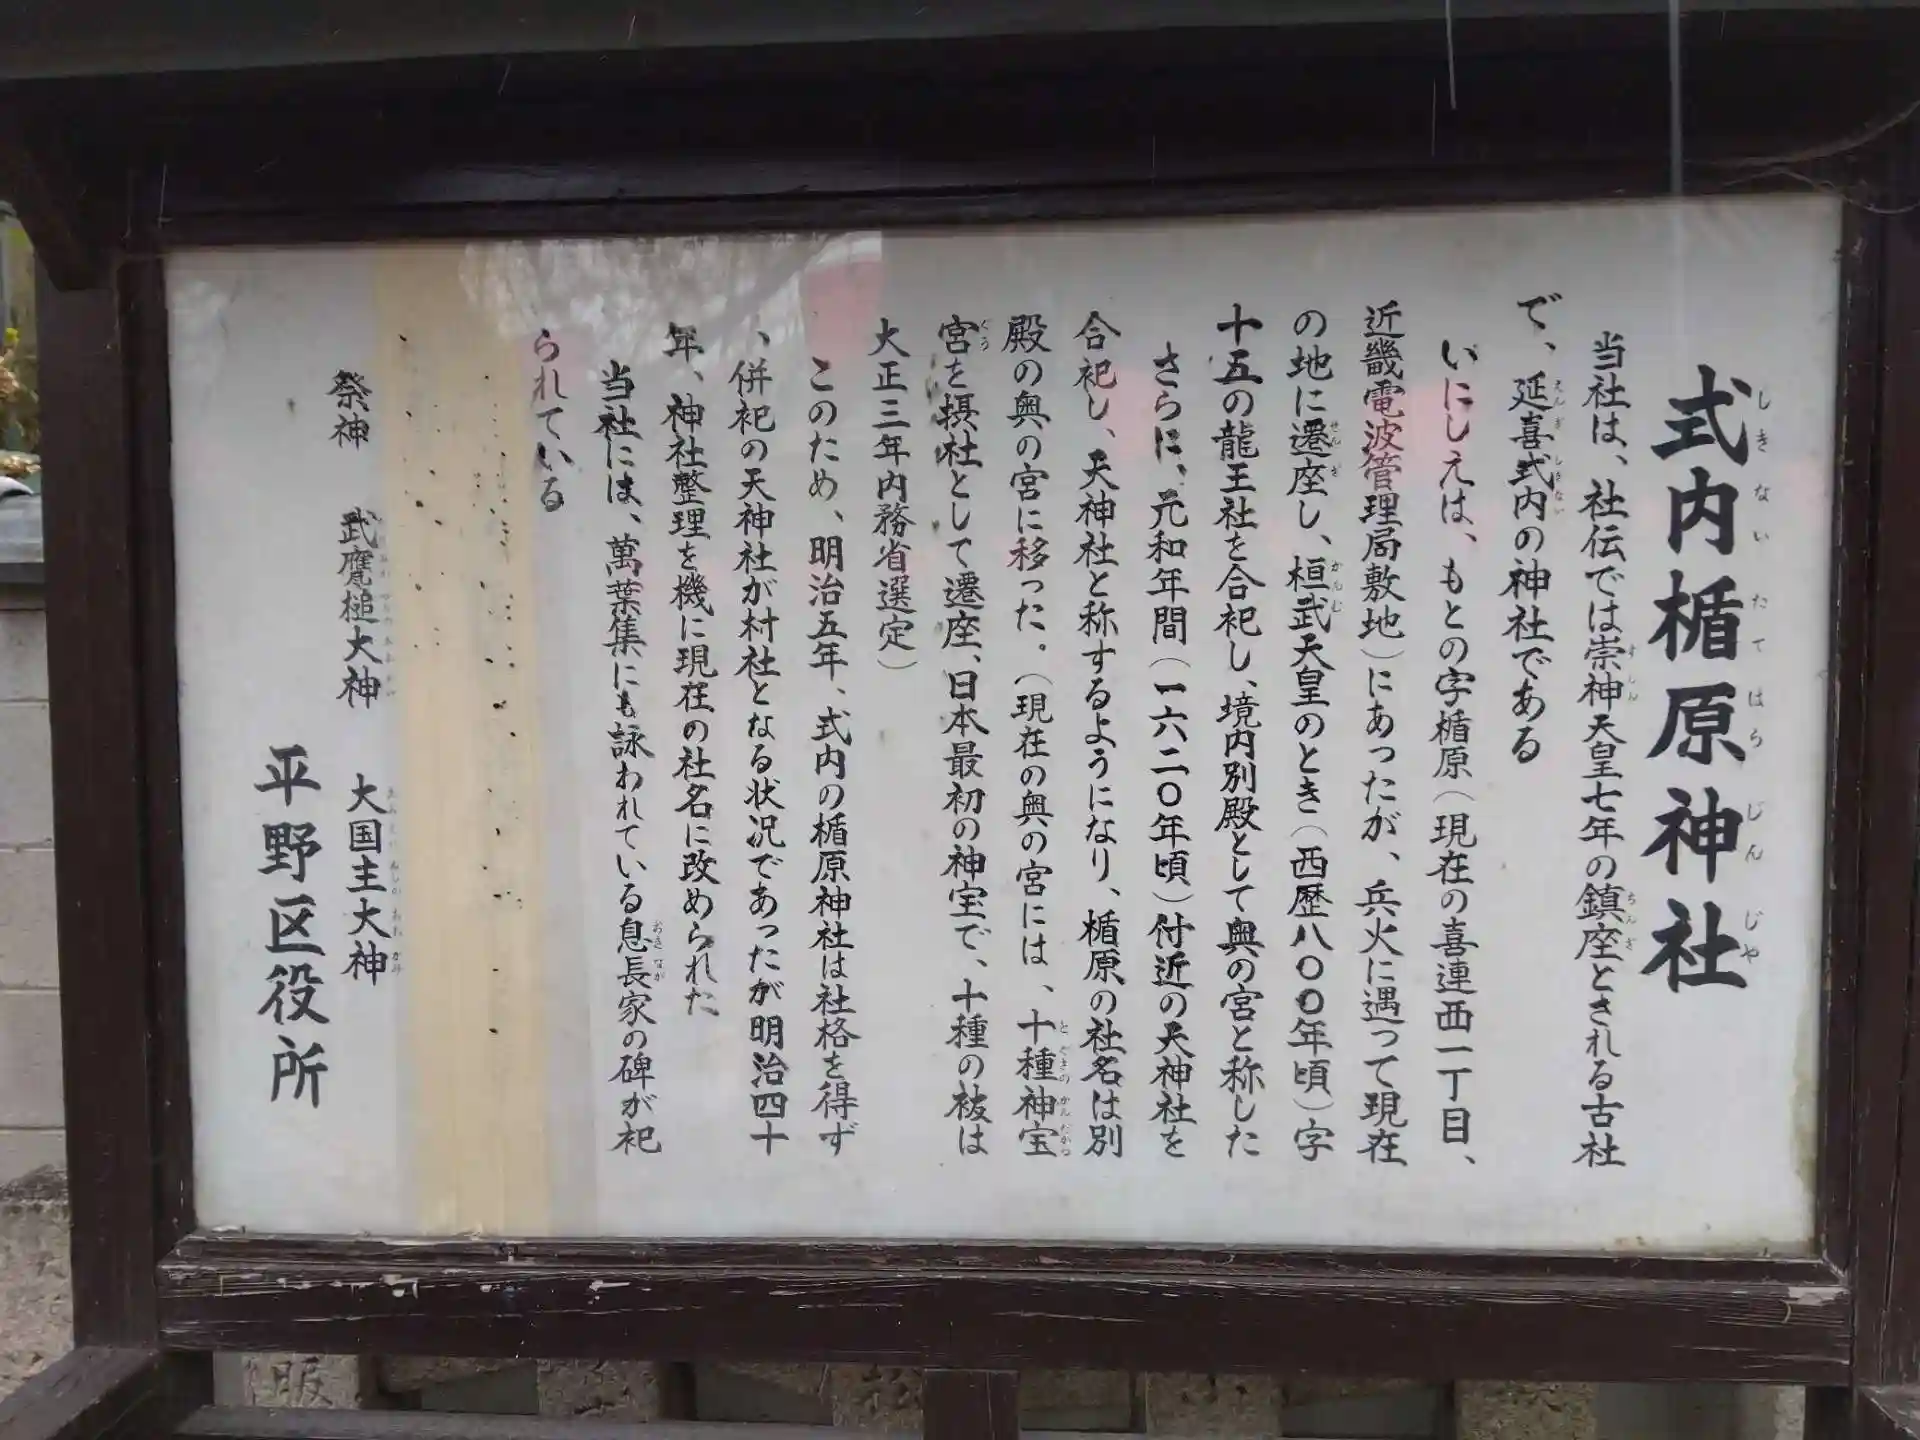 式内楯原神社
当社は、社伝では崇神天皇七年の鎮座とされる古社
で、延喜式内の神社である
いにしえは、もとの字楯原（現在の喜連西一丁目、
近畿電波管理局敷地）にあったが、兵火に遇って現在
の地に遷座し、桓武天皇のとき（西歴八〇〇年頃）字
十五の龍王社を合祀し、境内別殿として奥の宮と称した
さらに、元和年間（一六二〇年頃）付近の天神社を
合祀し、天神社と称するようになり、楯原の社名は別
殿の奥の宮に移った。（現在の奥の宮には、十種神宝
宮を摂社として遷座、日本最初の神宝で、十種の祓は
大正三年内務省選定）
このため、明治五年、式内の楯原神社は社格を得ず
、併祀の天神社が村社となる状況であったが明治四十
年、神社整理を機に現在の社名に改められた
当社には、萬葉集にも詠われている息長家の碑が祀
られている
祭神　武甕槌大神　大国主大神
平野区役所